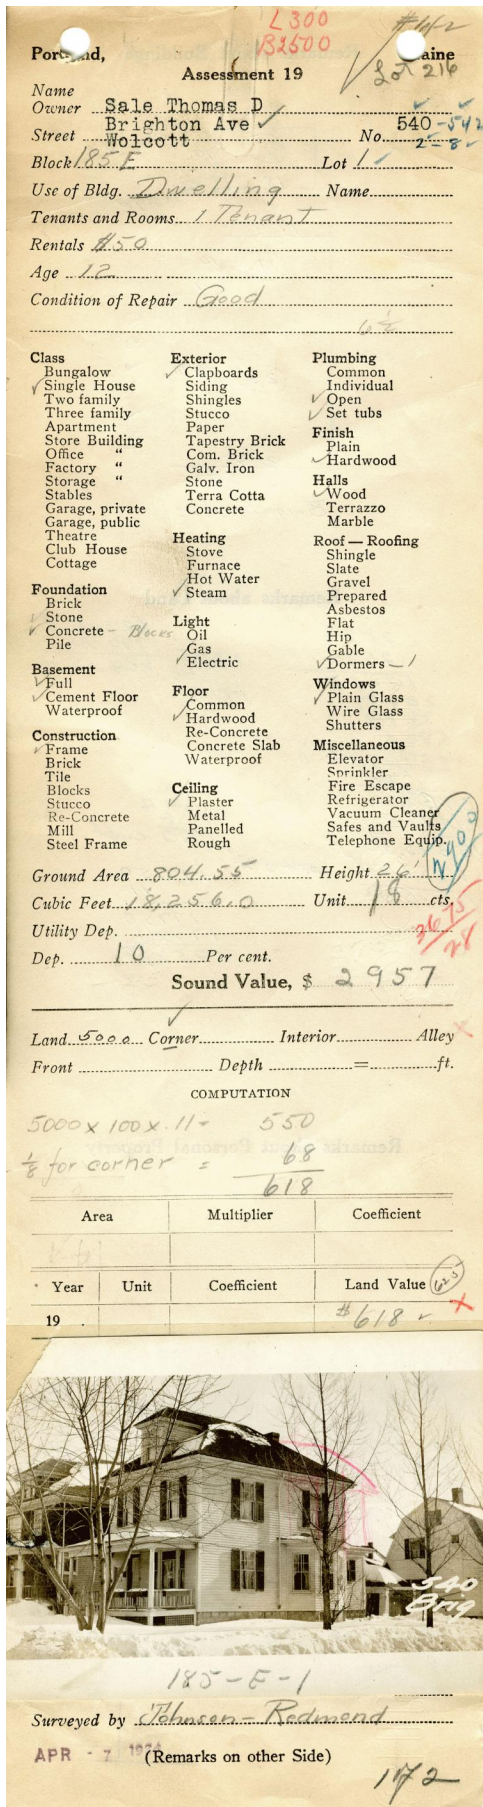 L 300
B2500
Lot 216
Portland, Maine
Assessment 19
Name
Owner Sale Thomas D
Brighton Ave 540-542
Street Wolcott No. 2-8
Block 185 E Lot 1
Use of Bldg. Dwelling Name
Tenants and Rooms 1 Tenant
Rentals $50
Age 12
Condition of Repair Good
Class
Bungalow
Single House
Two family
Three family
Apartment
Store Building
Office "
Factory "
Storage "
Stables
Garage, private
Garage, public
Theatre
Club House
Cottage
Foundation
Brick
Stone
Concrete - Blocks
Pile
Basement
Full
Cement Floor
Waterproof
Construction
Frame
Brick
Tile
Blocks
Stucco
Re-Concrete
Mill
Steel Frame
Exterior
Clapboards
Siding
Shingles
Stucco
Paper
Tapestry Brick
Com. Brick
Galv. Iron
Stone
Terra Cotta
Concrete
Heating
Stove
Furnace
Hot Water
Steam
Light
Oil
Gas
Electric
Floor
Common
Hardwood
Re-Concrete
Concrete Slab
Waterproof
Ceiling
Plaster
Metal
Panelled
Rough
Plumbing
Common
Individual
Open
Set tubs
Finish
Plain
Hardwood
Halls
Wood
Terrazzo
Marble
Roof — Roofing
Shingle
Slate
Gravel
Prepared
Asbestos
Flat
Hip
Gable
Dormers - 1
Windows
Plain Glass
Wire Glass
Shutters
Miscellaneous
Elevator
Sprinkler
Fire Escape
Refrigerator
Vacuum Cleaner
Safes and Vaults
Telephone Equip.
2900
Ground Area 804.55 Height 26'
Cubic Feet 18,256.0 Unit 18 cts.
3675
28
Utility Dep.
Dep. 10 Per cent.
Sound Value, $ 2957
Land 5000 Corner Interior Alley
Front Depth = ft.
COMPUTATION
5000 x 100 x .11 = 550
1/8 for corner = 68
618
Area Multiplier Coefficient
Year Unit Coefficient Land Value 625
19 $618
540
Brig
185-E-1
Surveyed by Johnson - Redmond
APR - 7 1924
(Remarks on other Side)
172